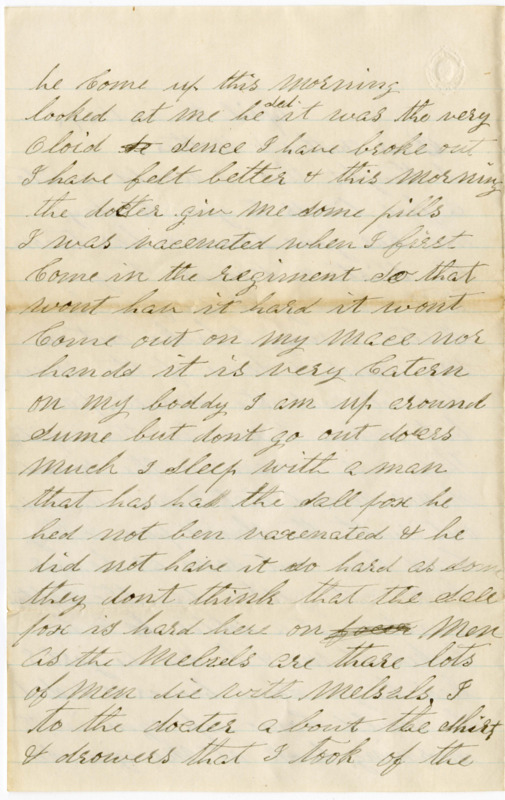 he Come up this Morning
looked at me he sed it was the very
Cloid sence I have broke out
I have felt better & this Morning
the docter giv me some pills
I was vacenated when I first
Come in the regiment so that
wont hav it hard it wont
Come out on my Mace nor
hands it is very Catern
on my boddy I am up around
sume but dont go out doers
Much I sleep with a man
that has had the sall pox he
hed not ben vacenated & he
did not have it so hard as som
they dont think that the sall
pox is hard here on Men
as the Melzels are thare lots
of Men die with Melsals, I
to the docter a bout the Shirt
& drowers that I took of the